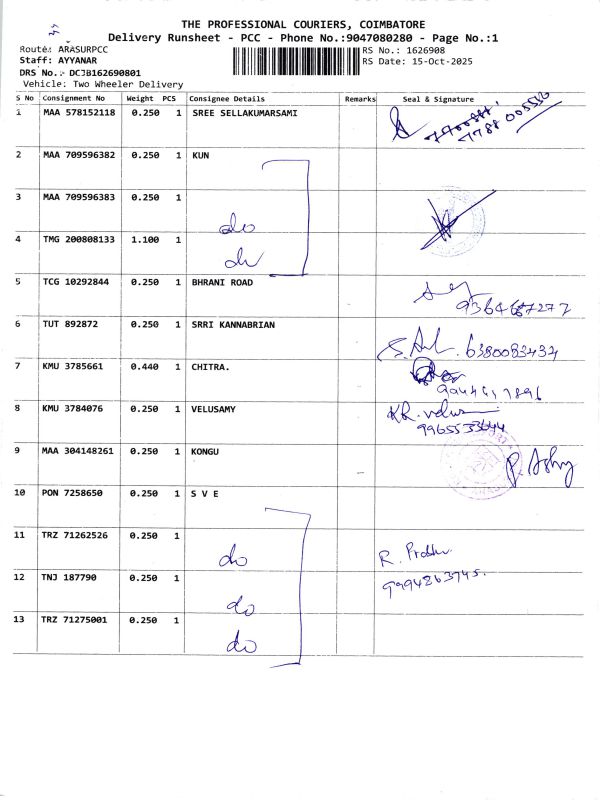 THE PROFESSIONAL COURIERS, COIMBATORE
Delivery Runsheet - PCC - Phone No.:9047080280 - Page No.:1
Route: ARASURPCC
RS No.: 1626908
Staff: AYYANAR
RS Date: 15-Oct-2025
DRS No.:- DCJB162690801
Vehicle: Two Wheeler Delivery
S No Consignment No Weight PCS Consignee Details Remarks Seal & Signature
1 MAA 578152118 0.250 1 SREE SELLAKUMARSAMI
2 MAA 709596382 0.250 1 KUN
3 MAA 709596383 0.250 1 do
4 TMG 200808133 1.100 1 do
5 TCG 10292844 0.250 1 BHRANI ROAD
9364687277
6 TUT 892872 0.250 1 SRRI KANNABRIAN
6380083434
7 KMU 3785661 0.440 1 CHITRA.
8 KMU 3784076 0.250 1 VELUSAMY KR. velu
9965533644
9 MAA 304148261 0.250 1 KONGU
10 PON 7258650 0.250 1 S V E
11 TRZ 71262526 0.250 1 do R. Prabhu
12 TNJ 187790 0.250 1 do 9994263745.
13 TRZ 71275001 0.250 1 do